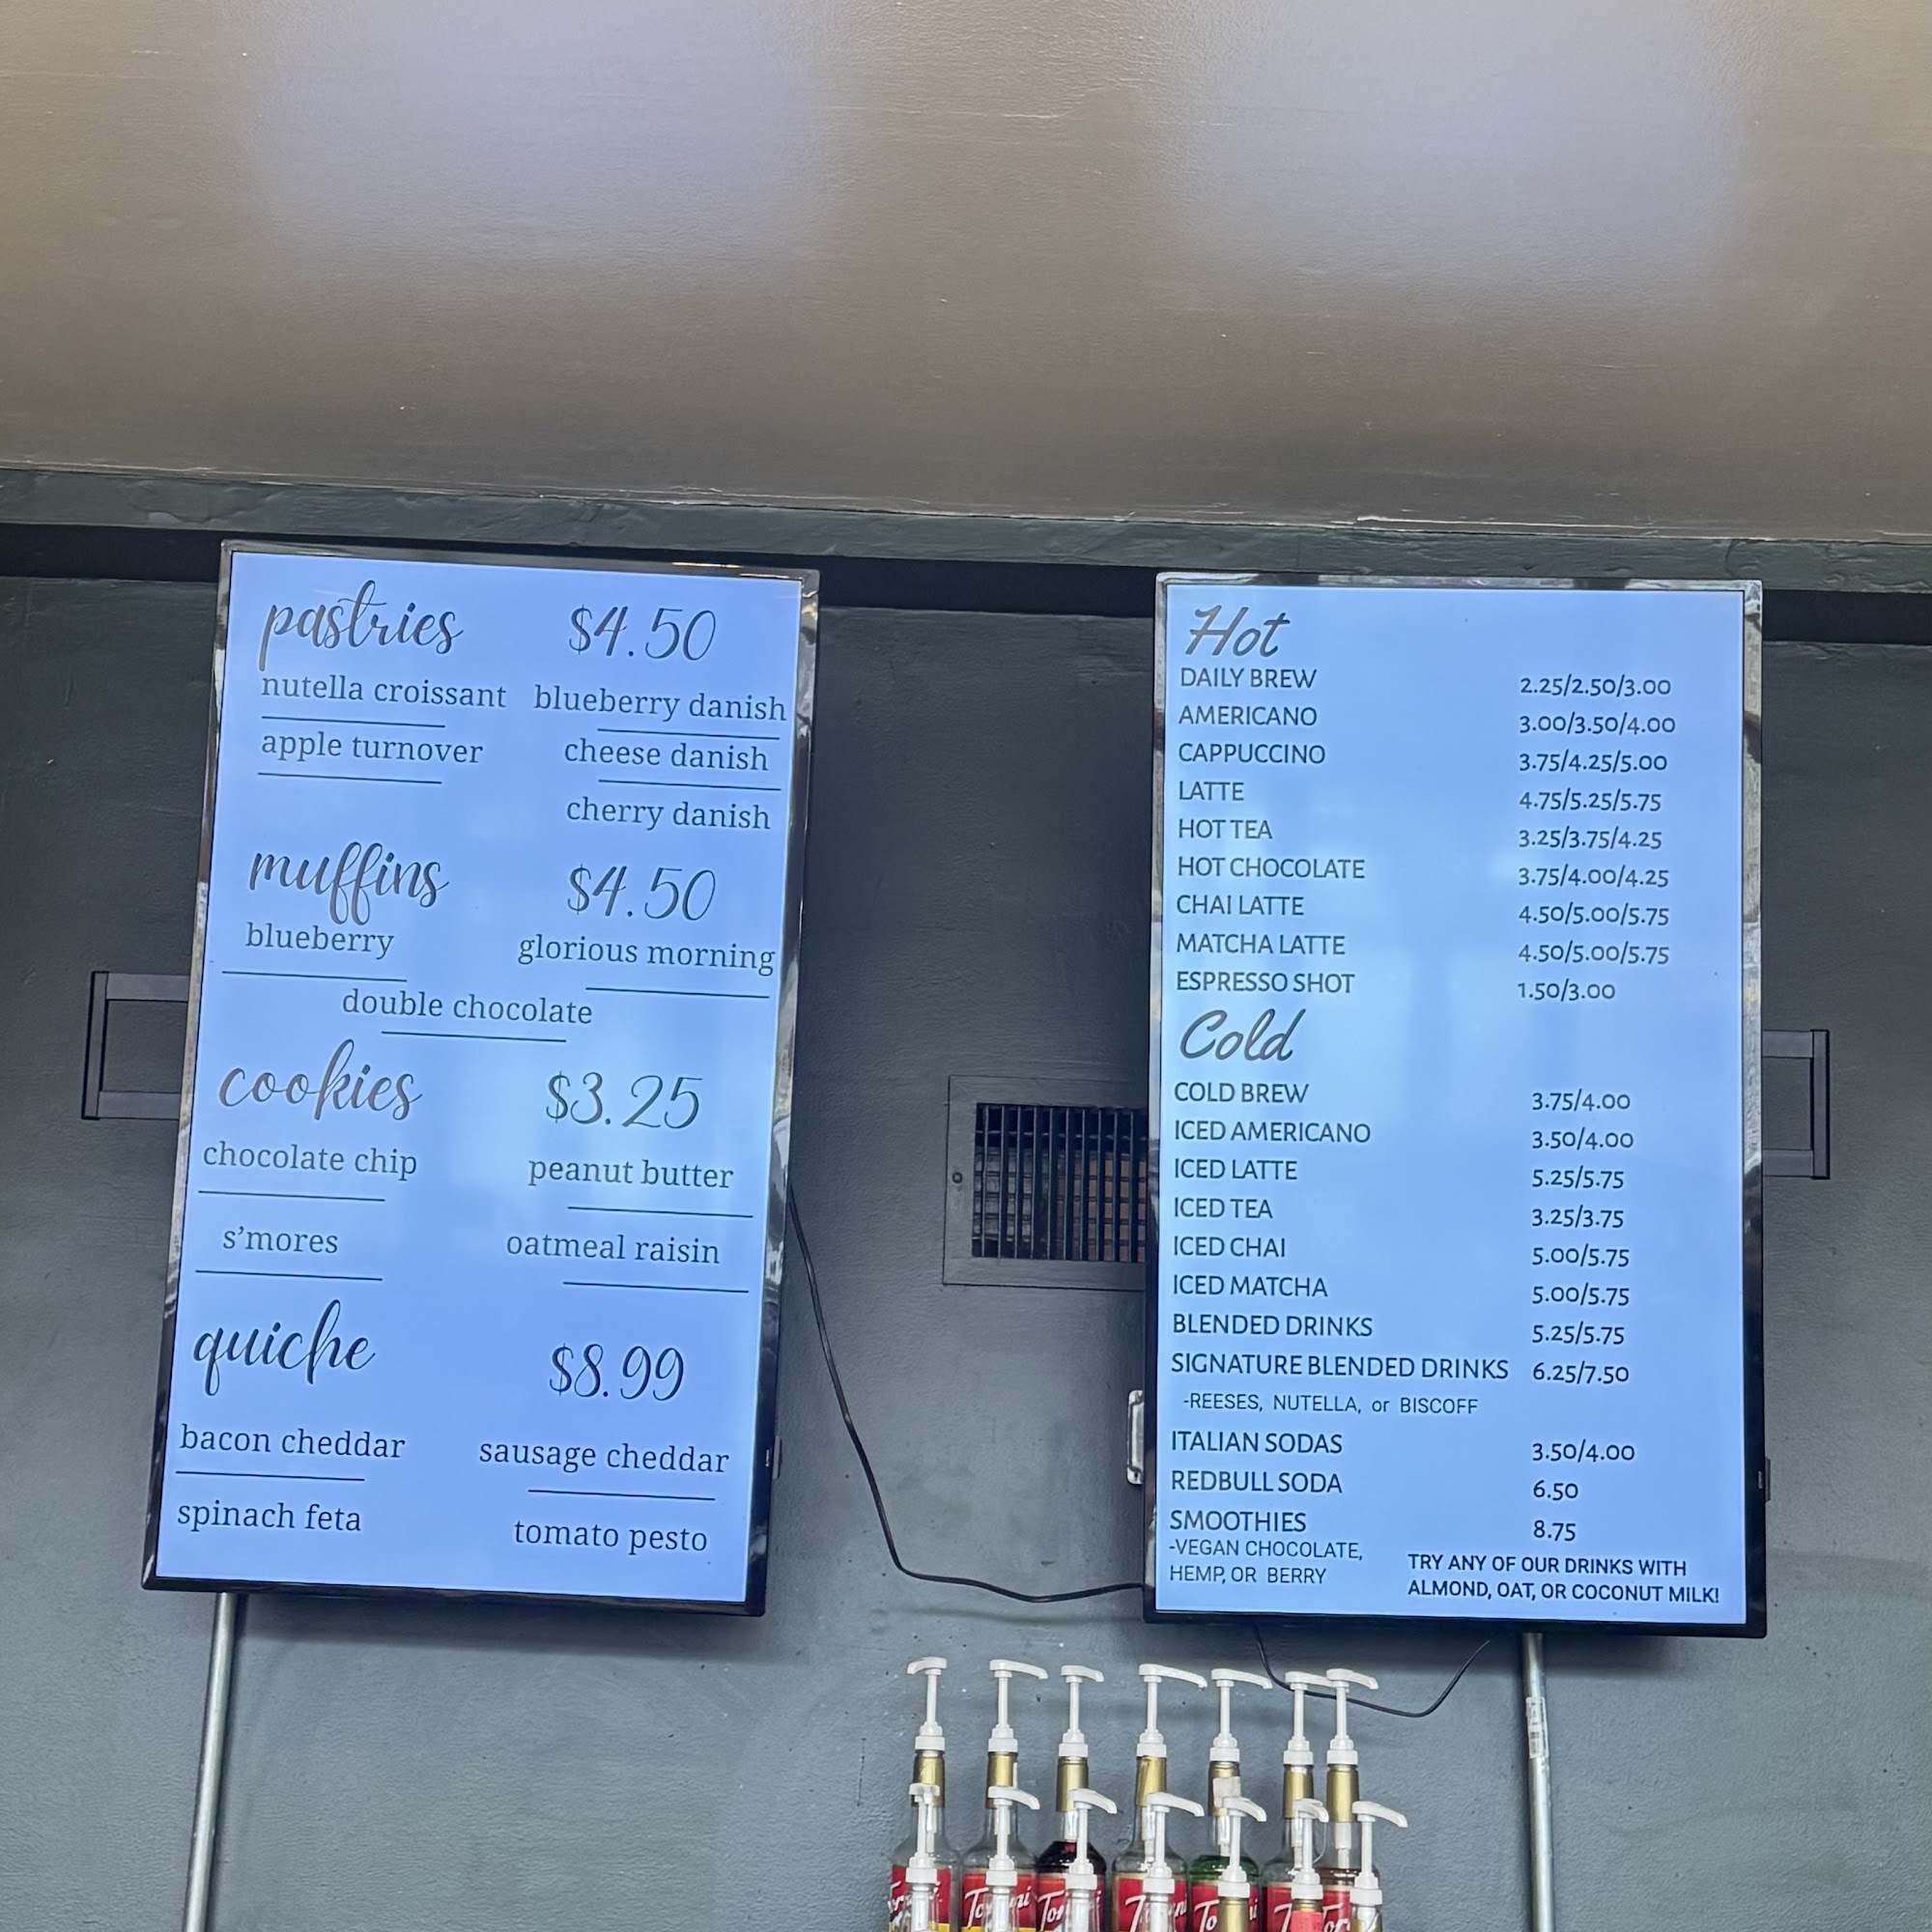 pastries $4.50
nutella croissant blueberry danish
apple turnover cheese danish
cherry danish
muffins $4.50
blueberry glorious morning
double chocolate
cookies $3.25
chocolate chip peanut butter
s'mores oatmeal raisin
quiche $8.99
bacon cheddar sausage cheddar
spinach feta tomato pesto
Hot
DAILY BREW 2.25/2.50/3.00
AMERICANO 3.00/3.50/4.00
CAPPUCCINO 3.75/4.25/5.00
LATTE 4.75/5.25/5.75
HOT TEA 3.25/3.75/4.25
HOT CHOCOLATE 3.75/4.00/4.25
CHAI LATTE 4.50/5.00/5.75
MATCHA LATTE 4.50/5.00/5.75
ESPRESSO SHOT 1.50/3.00
Cold
COLD BREW 3.75/4.00
ICED AMERICANO 3.50/4.00
ICED LATTE 5.25/5.75
ICED TEA 3.25/3.75
ICED CHAI 5.00/5.75
ICED MATCHA 5.00/5.75
BLENDED DRINKS 5.25/5.75
SIGNATURE BLENDED DRINKS 6.25/7.50
-REESES, NUTELLA, or BISCOFF
ITALIAN SODAS 3.50/4.00
REDBULL SODA 6.50
SMOOTHIES 8.75
-VEGAN CHOCOLATE,
HEMP, OR BERRY
TRY ANY OF OUR DRINKS WITH
ALMOND, OAT, OR COCONUT MILK!